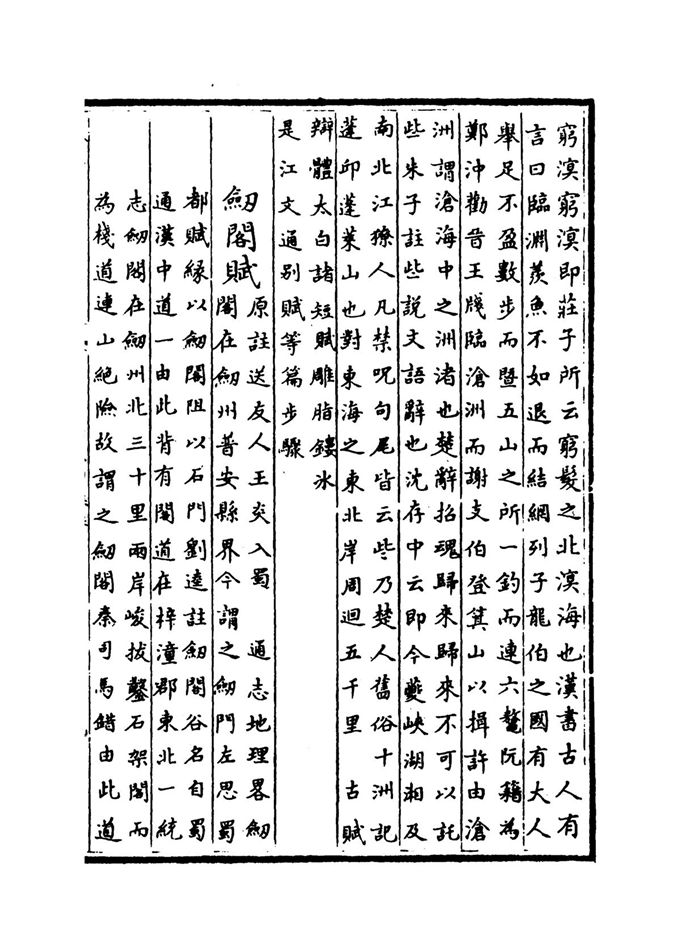 窮溟窮溟即莊子所云窮髮之北溟海也漢書古人有
言曰臨淵羨魚不如退而結網列子龍伯之國有大人
舉足不盈數步而暨五山之所一釣而連六鼇阮籍為
鄭沖勸晉王牋臨滄洲而謝支伯登箕山以揖許由滄
洲謂滄海中之洲渚也楚辭招魂歸來歸來不可以託
些朱子註些説文語辭也沈存中云即今夔峽湖湘及
南北江獠人凡禁呪句尾皆云些乃楚人舊俗十洲記
蓬邱蓬萊山也對東海之東北岸周迴五千里 古賦
辯體太白諸短賦雕脂鏤氷
是江文通别賦等篇步驟
劔閣賦
原註送友人王炎入蜀 通志地理畧劔
閣在劔州普安縣界今謂之劔門左思蜀
都賦縁以劔閣阻以石門劉逵註劔閣谷名自蜀
通漢中道一由此背有閣道在梓潼郡東北一統
志劔閣在劔州北三十里兩岸峻拔鑿石架閣而
為棧道連山絶險故謂之劔閣秦司馬錯由此道